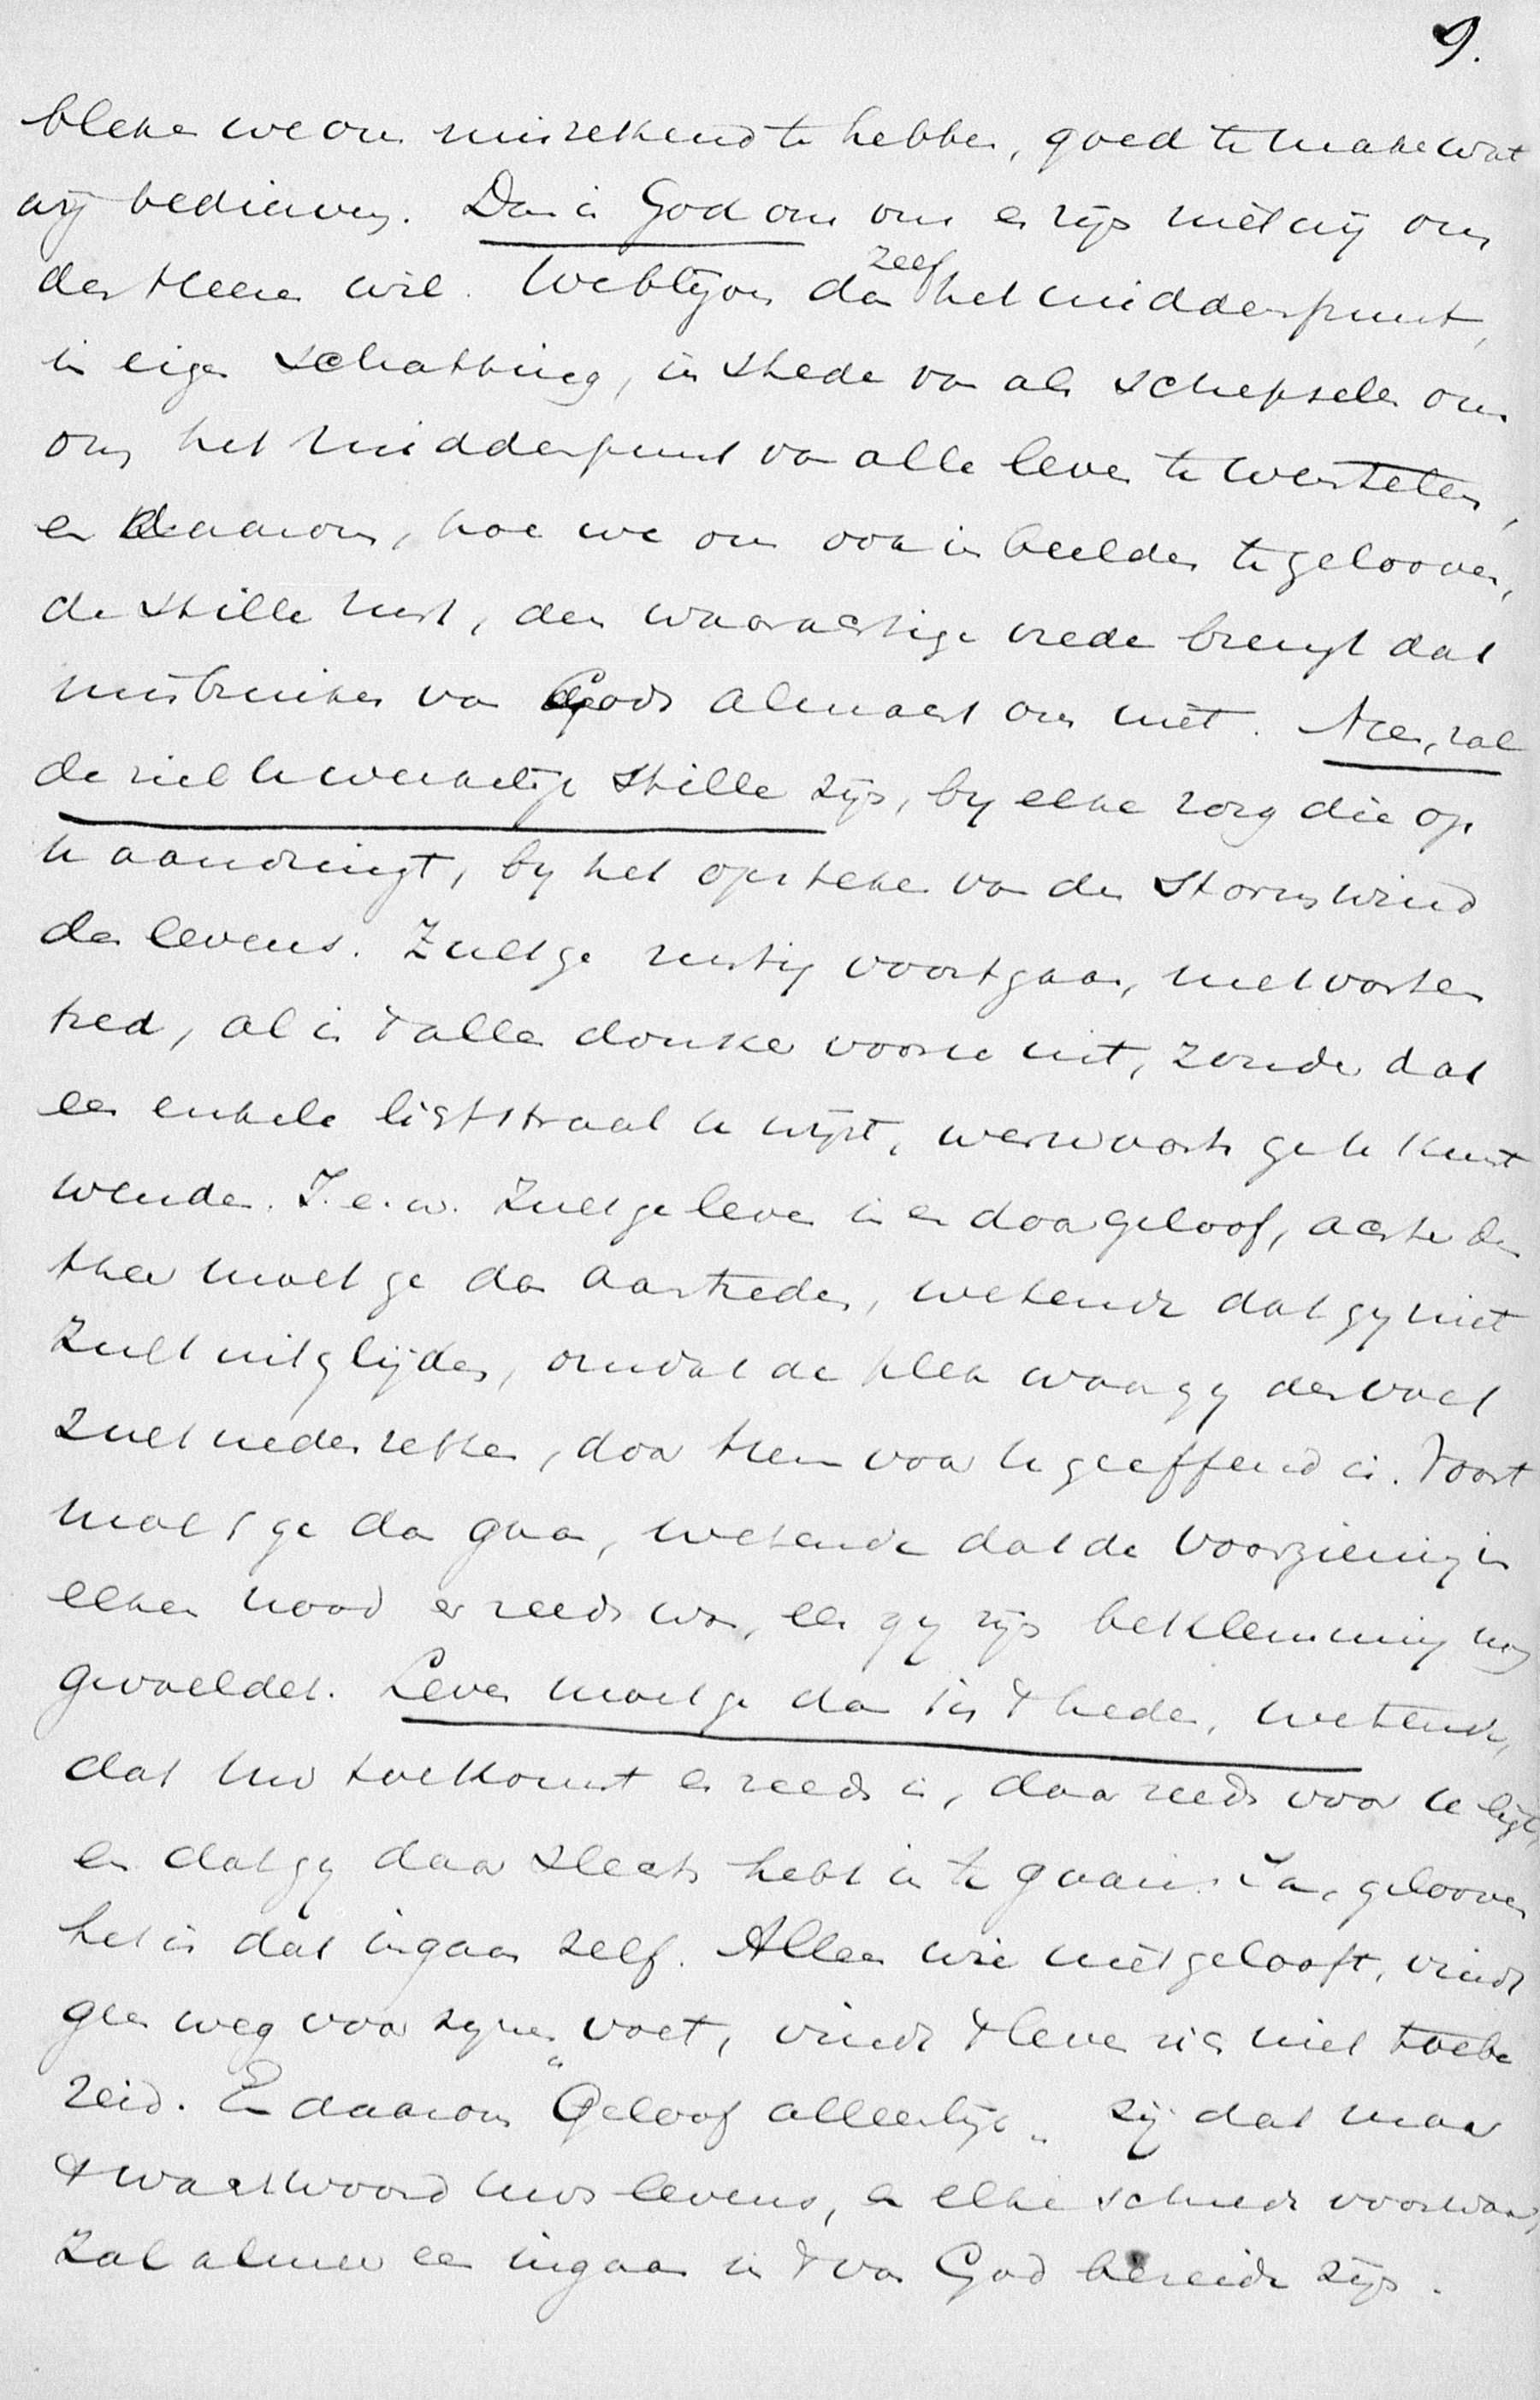 9.
bleken we ons misrekend te hebben, goed te maken wat
wij bedierven. Dan is God om ons en zijn niet wij om
des Heeren wil. We blijven dan zelf het middenpunt,
in eigen schatting, in stede van als schepselen om
ons het middenpunt van alle leven te wentelen,
en daarom, hoe we ons ook inbeelden te gelooven,
de stille rust, den waarachtige vrede brengt dat
misbruiken van Gods almacht ons niet. Neen, zal
de ziel u werkelijk stille zijn, by elke zorg die op
u aandringt, by het opsteken van den stormwind
des levens. Zult ge rustig voortgaan, met vasten
tred, al is 't alles donker vooru uit, zonder dat
een enkele lichtstraal u wijst, werwaarts ge u kunt
wenden. I.e.w. zult ge leven in en door geloof, achter den
Heer moet ge dan aantreden, wetende dat gy niet
zult uitglijden, omdat de plek waar gy den voet
zult nederzetten, door Hem voor u geeffend is. Voort
moet ge dan gaan, wetende dat de voorziening in
elken nood er reeds was, eer gy zijn beklemming nog
gevoeldet. Leven moet ge dan in 't heden, wetende,
dat uw toekomst er reeds is, daar reeds voor u ligt,
en dat gy daar slechts hebt in te gaan. Ja, gelooven
het is dat ingaan zelf. Alleen wie niet gelooft, vindt
geen weg voor zynen voet, vindt 't leven zich niet toebe
reid. En daarom "Geloof alleenlijk" zij dat maar
't wachtwoord uws levens, en elke schrede voorwaarts,
zal almeer een ingaan in 't van God bereide zijn.